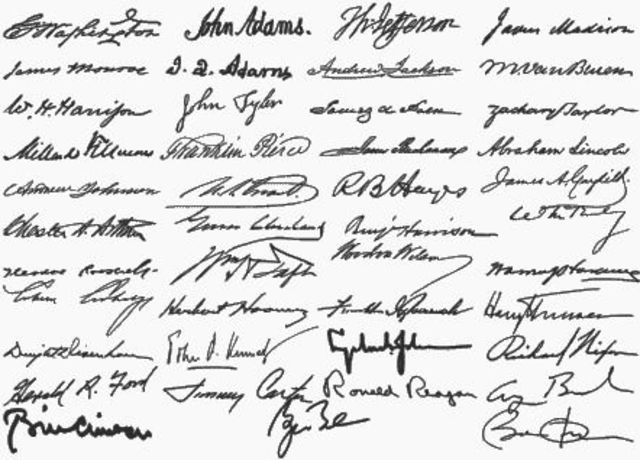 G Washington John Adams. Th Jefferson James Madison
James Monroe J. Q. Adams Andrew Jackson M Van Buren
W. H. Harrison John Tyler James K Polk Zachary Taylor
Millard Fillmore Franklin Pierce James Buchanan Abraham Lincoln
Andrew Johnson U. S. Grant R B Hayes James A. Garfield
Chester A. Arthur Grover Cleveland Benj Harrison
Theodore Roosevelt Wm H Taft Woodrow Wilson Warren G Harding
Calvin Coolidge Herbert Hoover Franklin D Roosevelt Harry Truman
Dwight D Eisenhower John F. Kennedy Lyndon B. Johnson Richard Nixon
Gerald R. Ford Jimmy Carter Ronald Reagan
Bill Clinton